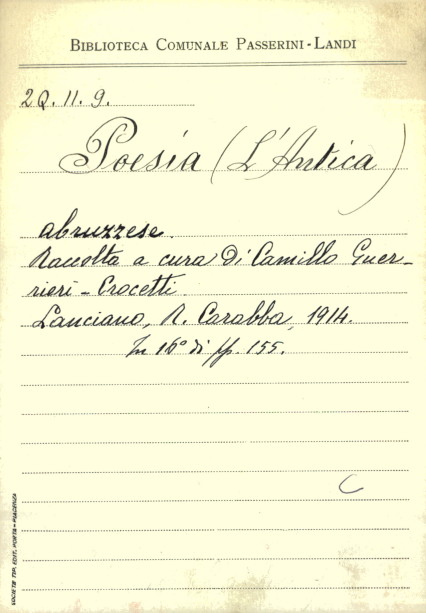 BIBLIOTECA COMUNALE PASSERINI-LANDI
2Q. 11. 9.
Poesia (L'Antica)
abruzzese.
Raccolta a cura di Camillo Guer-
rieri-Crocetti.
Lanciano, R. Carabba, 1914.
In 16° di pp. 155.
C
SOCIETÀ TIP. EDIT. PORTA-PIACENZA